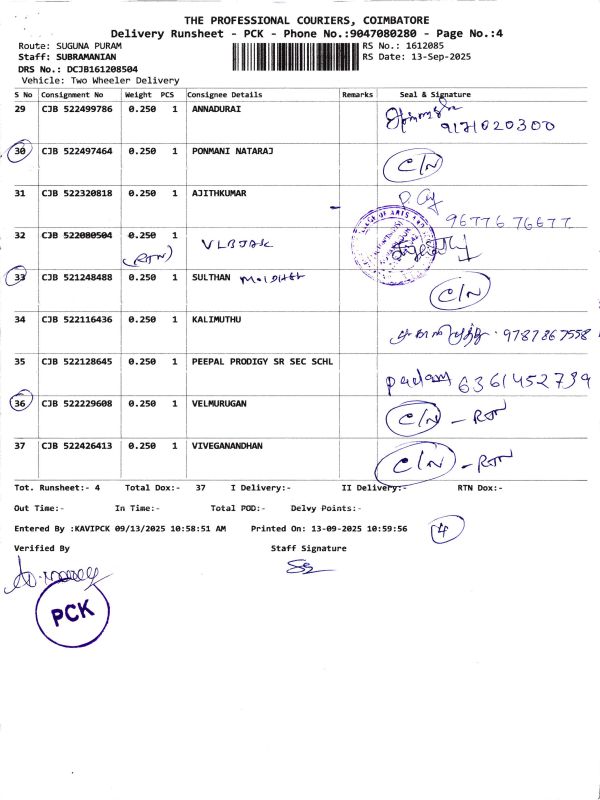 THE PROFESSIONAL COURIERS, COIMBATORE
Delivery Runsheet - PCK - Phone No.:9047080280 - Page No.:4
Route: SUGUNA PURAM RS No.: 1612085
Staff: SUBRAMANIAN RS Date: 13-Sep-2025
DRS No.: DCJB161208504
Vehicle: Two Wheeler Delivery
S No Consignment No Weight PCS Consignee Details Remarks Seal & Signature
29 CJB 522499786 0.250 1 ANNADURAI
9171020300
30 CJB 522497464 0.250 1 PONMANI NATARAJ C/N
31 CJB 522320818 0.250 1 AJITHKUMAR
96776 76677
32 CJB 522080504 0.250 1 VLBJAK
(RTN)
33 CJB 521248488 0.250 1 SULTHAN C/N
34 CJB 522116436 0.250 1 KALIMUTHU
9787867558
35 CJB 522128645 0.250 1 PEEPAL PRODIGY SR SEC SCHL
padam 6361452739
36 CJB 522229608 0.250 1 VELMURUGAN C/N - RTN
37 CJB 522426413 0.250 1 VIVEGANANDHAN C/N - RTN
Tot. Runsheet:- 4 Total Dox:- 37 I Delivery:- II Delivery:- RTN Dox:-
Out Time:- In Time:- Total POD:- Delvy Points:-
Entered By :KAVIPCK 09/13/2025 10:58:51 AM Printed On: 13-09-2025 10:59:56 4
Verified By Staff Signature
PCK